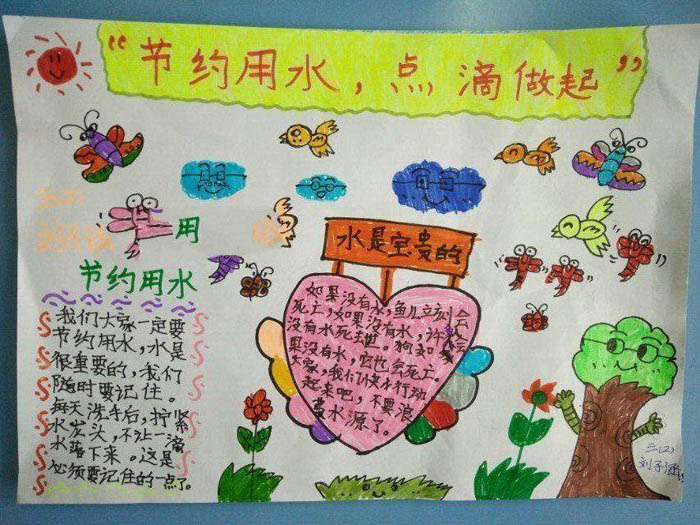 “节约用水，点滴做起”
用
节约用水
我们大家一定要
节约用水，水是
很重要的，我们
随时要记住。
每天洗手后，拧紧
水龙头，不让一滴
水落下来。这是
必须要记住的一点了。
水是宝贵的
如果没有水，鱼儿立刻会
死亡，如果没有水，许
没有水死去。狗
果没有水，它也会死亡。
大家，我们快水行动
起来吧，不要浪
费水源了。
三(2)
刘子涵